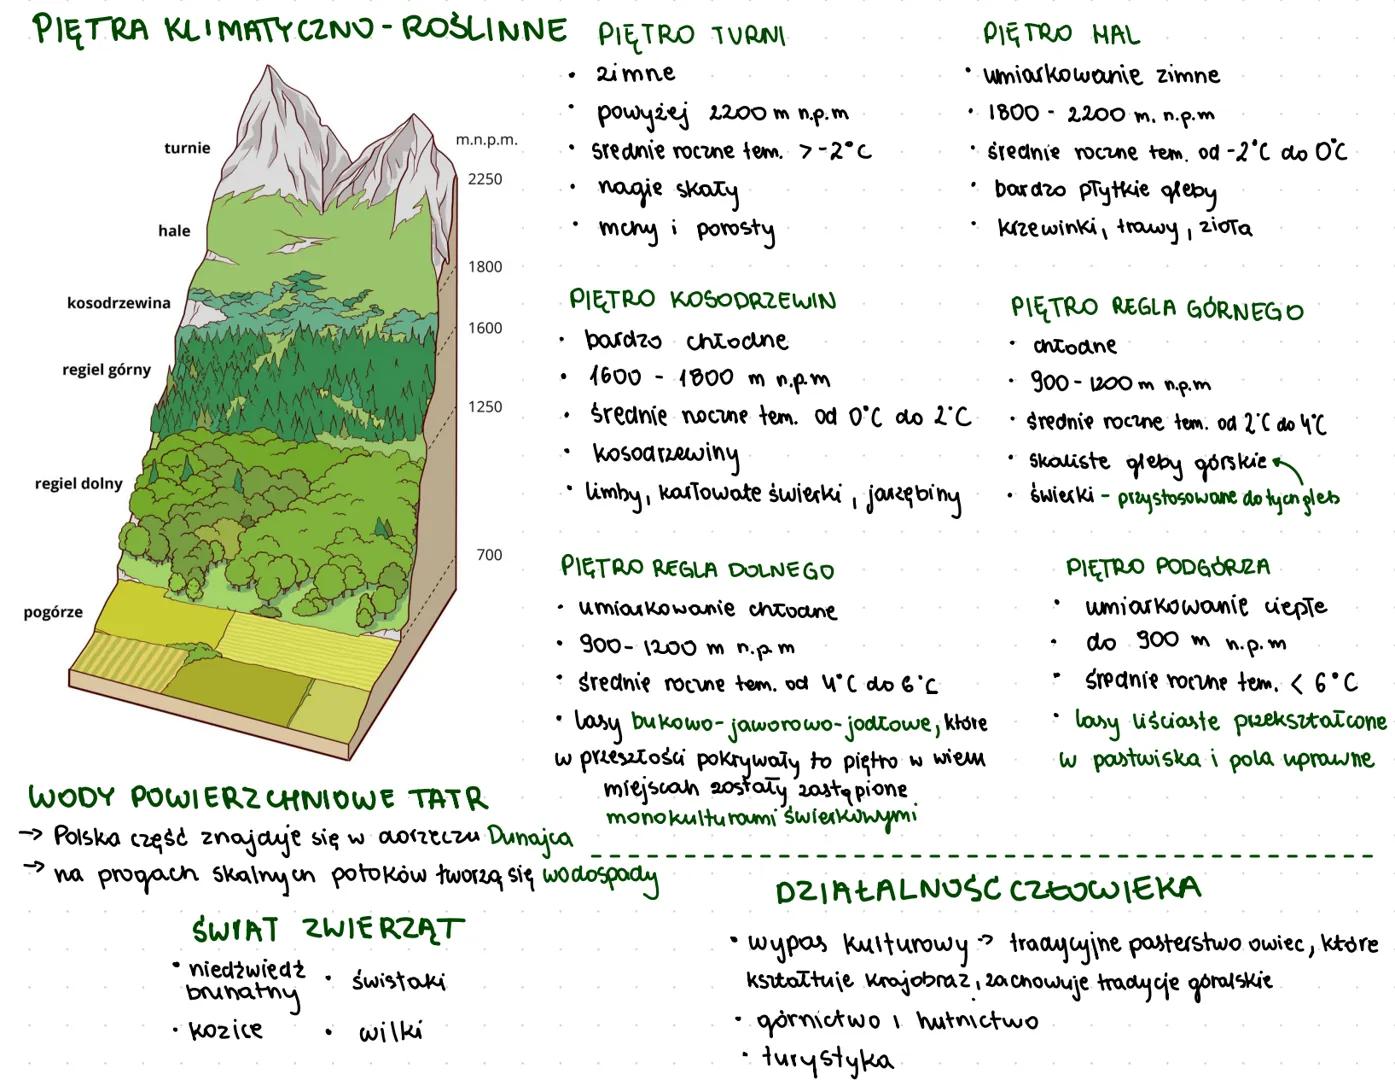 PIĘTRA KLIMATYCZNO-ROŚLINNE
turnie
hale
kosodrzewina
regiel górny
regiel dolny
pogórze
m.n.p.m.
2250
1800
1600
1250
700
PIĘTRO TURNI
• zimne
• powyżej 2200 m n.p.m
• średnie roczne tem. > -2°C
• nagie skały
• mchy i porosty
PIĘTRO HAL
• umiarkowanie zimne
• 1800 - 2200 m. n.p.m
• średnie roczne tem. od -2°C do 0°C
• bardzo płytkie gleby
• krzewinki, trawy, zioła
PIĘTRO KOSODRZEWIN
• bardzo chłodne
• 1600 - 1800 m n.p.m
• średnie roczne tem. od 0°C do 2°C
• kosodrzewiny
• limby, karłowate świerki, jarzębiny
PIĘTRO REGLA GÓRNEGO
• chłodne
• 900-1200 m n.p.m
• średnie roczne tem. od 2°C do 4°C
• skaliste gleby górskie
• świerki - przystosowane do tych gleb
PIĘTRO REGLA DOLNEGO
• umiarkowanie chłodne
• 900-1200 m n.p.m
• średnie roczne tem. od 4°C do 6°C
• lasy bukowo-jaworowo-jodłowe, które
w przeszłości pokrywały to piętro w wielu
miejscach zostały zastąpione
monokulturami świerkowymi
PIĘTRO PODGÓRZA
• umiarkowanie ciepłe
• do 900 m n.p.m
• średnie roczne tem. < 6°C
• lasy liściaste przekształcone
w pastwiska i pola uprawne
WODY POWIERZCHNIOWE TATR
→ Polska część znajduje się w dorzeczu Dunajca
→ na progach skalnych potoków tworzą się wodospady
ŚWIAT ZWIERZĄT
• niedźwiedź
brunatny
• świstaki
• kozice
• wilki
DZIAŁALNOŚĆ CZŁOWIEKA
• wypas kulturowy -> tradycyjne pasterstwo owiec, które
kształtuje krajobraz, zachowuje tradycje góralskie
• górnictwo i hutnictwo
• turystyka